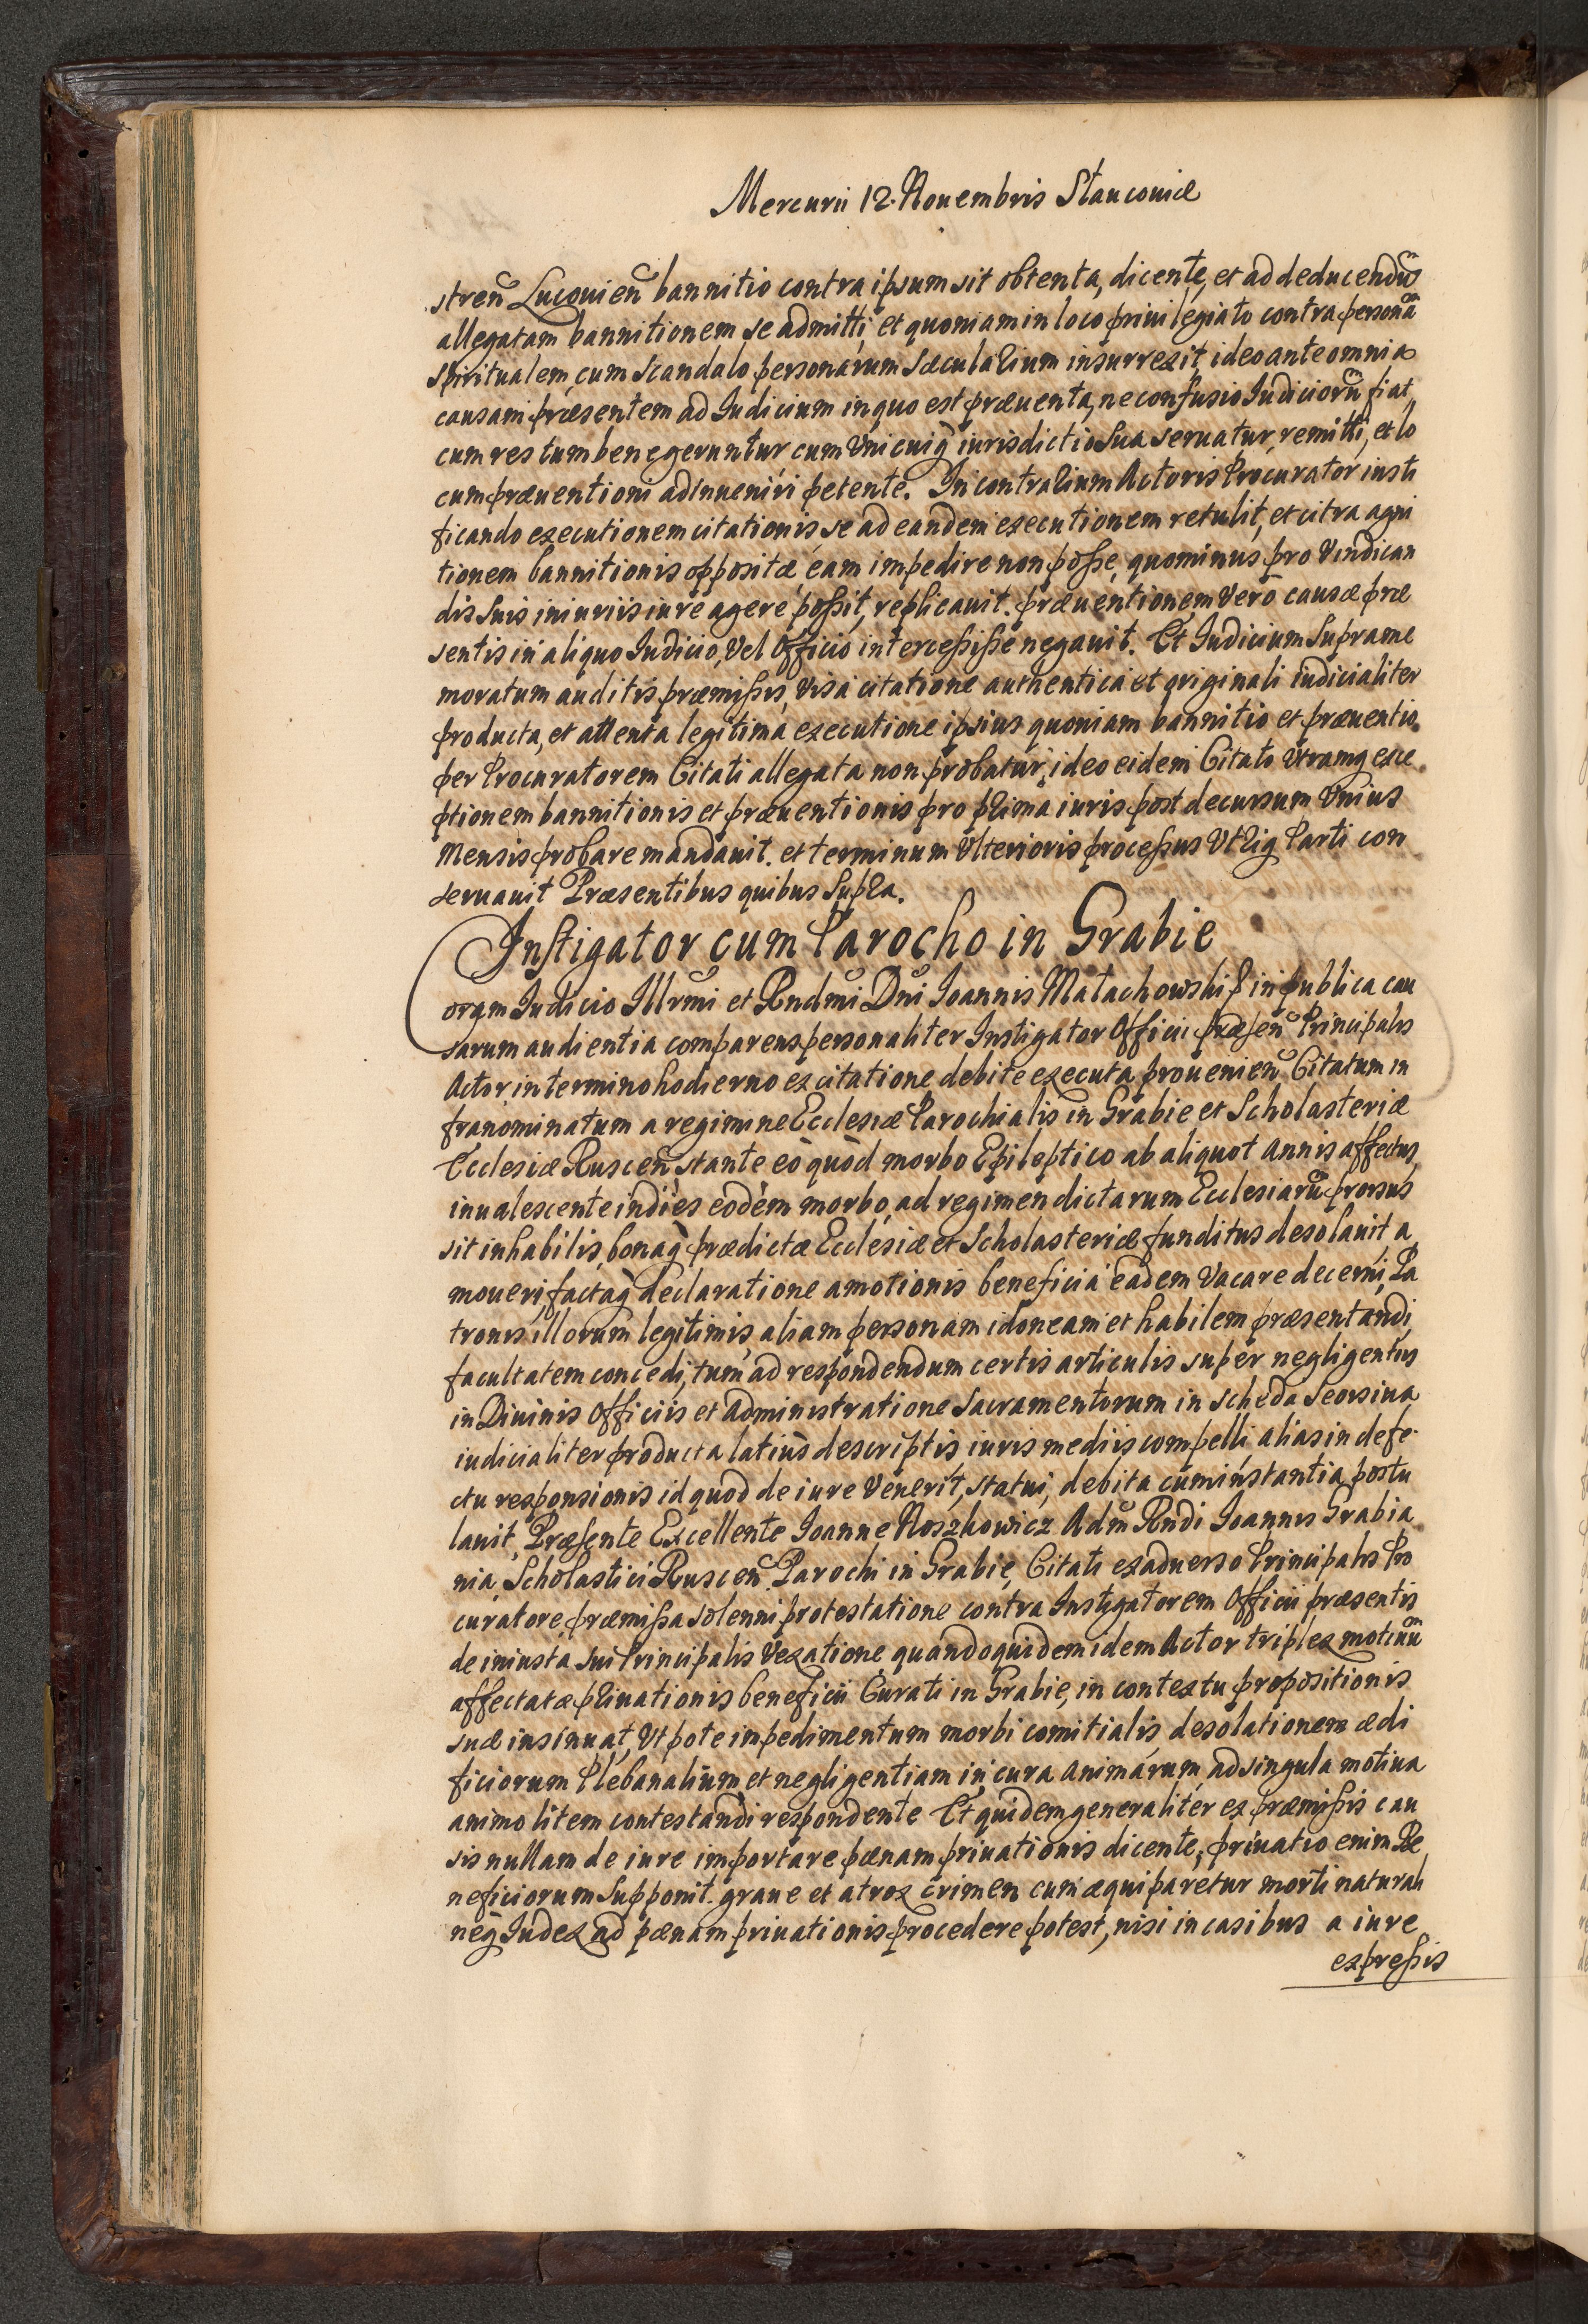 Mercurii 12. Nouembris Stauconiæ
streñ Luconieñ bannitio contra ipsum sit obtenta, dicente, et ad deducendū
allegatam bannitionem se admitti, et quoniam in loco priuilegiato contra personā
spiritualem cum scandalo personarum sæcularium insurrexit, ideo ante omnia
causam præsentem ad Iudicium in quo est præuenta, ne confusio Iudiciorū fiat,
cum res tum bene geruntur cum Vnicuiq iurisdictio sua seruatur, remitti, et lo
cum præuentioni adinueniri petente. In contrarium Actoris Procurator iusti
ficando executionem citationis, se ad eandem executionem retulit, et citra agni
tionem bannitionis oppositæ, eam impedire non posse, quominus pro Vindican
dis suis iniuriis iure agere possit, replicauit. præuentionem Vero causæ præ
sentis in aliquo Iudicio, Vel Officio intercessisse negauit. Et Iudicium Suprame
moratum auditis præmissis, Visa citatione authentica et originali iudicialiter
producta, et attenta legitima executione ipsius quoniam bannitio et præuentio
per Procuratorem Citati allegata non probatur, ideo eidem Citato Vtramq exce
ptionem bannitionis et præuentionis pro prima iuris post decursum Vnius
Mensis probare mandauit. et terminum Vlterioris processus Vtriq Parti con
seruauit Præsentibus quibus supra.
Instigator cum Parocho in Grabie
Coram Iudicio Illrmi et Rndmi Dni Ioannis Małachowski in publica cau
sarum audientia comparens personaliter Instigator Officii præseñ Principalis
Actor in termino hodierno ex citatione debite executa prouenieñ Citatum in
franominatum a regimine Ecclesiæ Parochialis in Grabie et Scholasteriæ
Ecclesiæ Rusceñ, stante eo quod morbo Epileptico ab aliquot annis affectus,
inualescente indies eodem morbo, ad regimen dictarum Ecclesiarū prorsus
sit inhabilis, bonaq prædictæ Ecclesiæ et Scholasteriæ funditus desolauit a
moueri, factaq declaratione amotionis beneficia eadem Vacare decerni, Pa
tronis illorum legitimis, aliam personam idoneam et habilem præsentandi
facultatem concedi, tum ad respondendum certis articulis super negligentiis
in Diuinis Officiis et Administratione Sacramentorum in scheda Seorsiua
iudicialiter producta latius descriptis, iuris mediis compelli, alias in defe
ctu responsionis id quod de iure Venerit, statui, debita cum instantia postu
lauit, Præsente Excellente Ioanne Noszkowicz Adm̃ Rndi Ioannis Grabia
nia Scholastici Rusceñ Parochi in Grabie, Citati ex aduerso Principalis Pro
curatore, præmissa solenni protestatione contra Instigatorem Officii præsentis
de iniusta sui Principalis Vexatione quandoquidem idem Actor triplex motiuū
affectatæ priuationis beneficii Curati in Grabie, in contextu propositionis
suæ insinuat, Vtpote impedimentum morbi comitialis desolationem ædi
ficiorum Plebanalium et negligentiam in cura animarum, ad singula motiua
animo litem contestandi respondente Et quidem generaliter ex præmissis cau
sis nullam de iure importare pænam priuationis dicente, priuatio enim Be
neficiorum Supponit graue et atrox crimen cum æquiparetur morti naturali
neq Iudex ad pænam priuationis procedere potest, nisi in casibus a iure
expressis